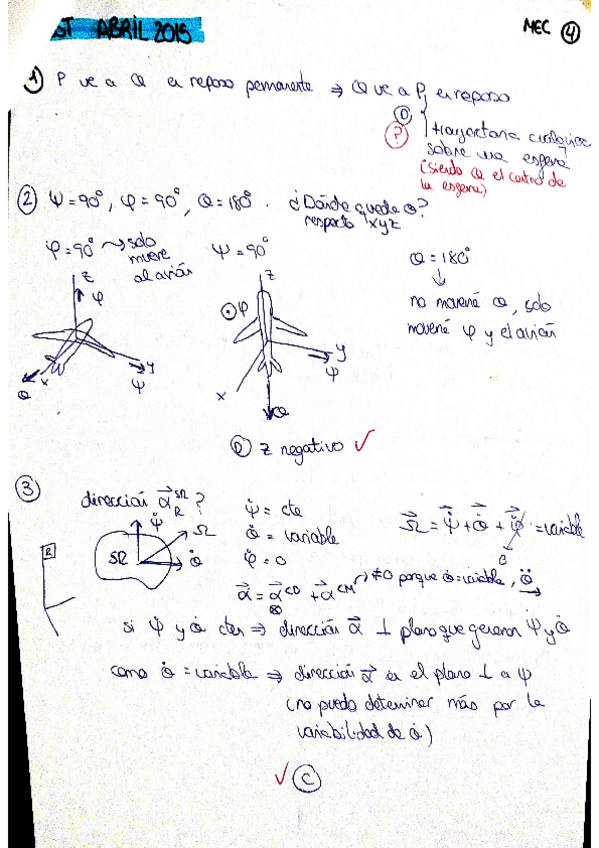 ST ABRIL 2015
MEC 4
1) P ve a Q en reposo permanente ⇒ Q ve a P, en reposo
D
?
trayectoria cualquiera
sobre una esfera
(siendo Q el centro de
la esfera)
2 Ψ=90°, φ=90°, θ=180°. ¿Dónde queda θ?
respecto xyz
φ=90° → solo
mueve
al avión
Ψ=90°
θ=180°
↓
no moveré θ, solo
moveré φ y el avión
z
φ
y
Ψ
x
θ
z
φ
y
Ψ
x
θ
D z negativo ✓
3
dirección α⃗ SΩ R ?
Ψ̇ = cte
θ̇ = variable
φ̇ = 0
Ω⃗ = Ψ̇ + θ̇ + φ̇ = variable
0
Ψ̇
Ω
SΩ
θ̇
R
α⃗ = α⃗ CD + α⃗ CM → ≠0 porque θ̇=variable, θ̈
si Ψ̇ y θ̇ ctes ⇒ dirección α⃗ ⊥ plano que generan Ψ̇ y θ̇
como θ̇ = variable ⇒ dirección α⃗ en el plano ⊥ a Ψ
(no puedo determinar más por la
variabilidad de θ̇)
✓ C